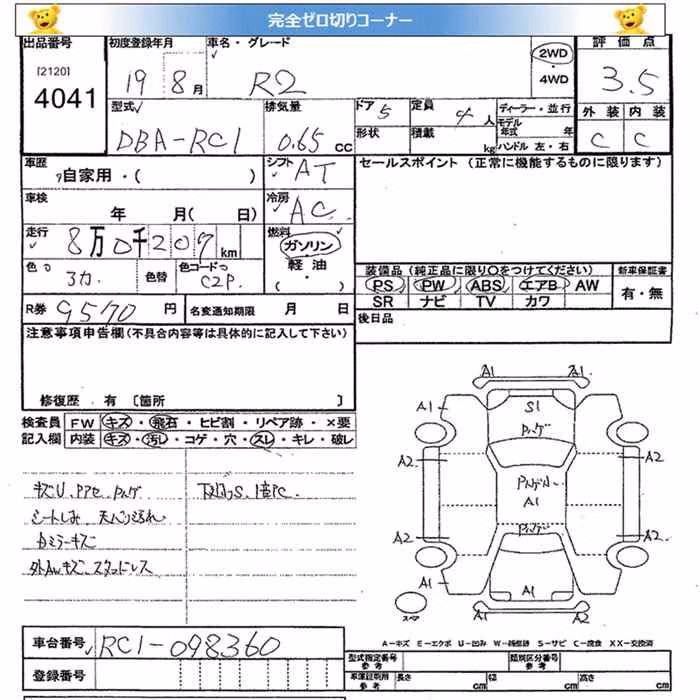 完全ゼロ切りコーナー
出品番号 初度登録年月 車名・グレード 2WD 評価点
[2120] 4041 19 8月 R2 4WD 3.5
型式 排気量 ドア 5 定員 4人 ディーラー・並行 外装 内装
DBA-RC1 0.65 CC 形状 積載 kg モデル年式 年 ハンドル 左・右 C C
車歴 自家用・( ) シフト AT セールスポイント (正常に機能するものに限ります)
車検 年 月( 日) 冷房 AC
走行 8万0千209km 燃料 ガソリン・軽油・( )
色 シカ 色替 色コード C2P 装備品 (純正品に限り○をつけてください) 新車保証書
PS PW ABS エアB AW 有・無
SR ナビ TV カワ
R券 9570円 名変通知期限 月 日 後日品
注意事項申告欄(不具合内容等は具体的に記入して下さい)
修復歴 有 〔箇所 〕
検査員 FW キズ・飛石・ヒビ割・リペア跡・×要
記入欄 内装 キズ・汚レ・コゲ・穴・スレ・キレ・破レ
シートしみ
ミラーキズ
外AWキズ スタッドレス
A1 A1
A1 S1 A1
A2 A2
A1
A2 A2
A1 A1 A2
スペア
A-キズ E-エクボ U-凹み W-補修跡 S-サビ C-腐食 XX-交換済
車台番号 RC1-098360
型式指定番号 参考 類別区分番号 参考
登録番号 車庫証明用 参考 長さ cm 幅 cm 高さ cm